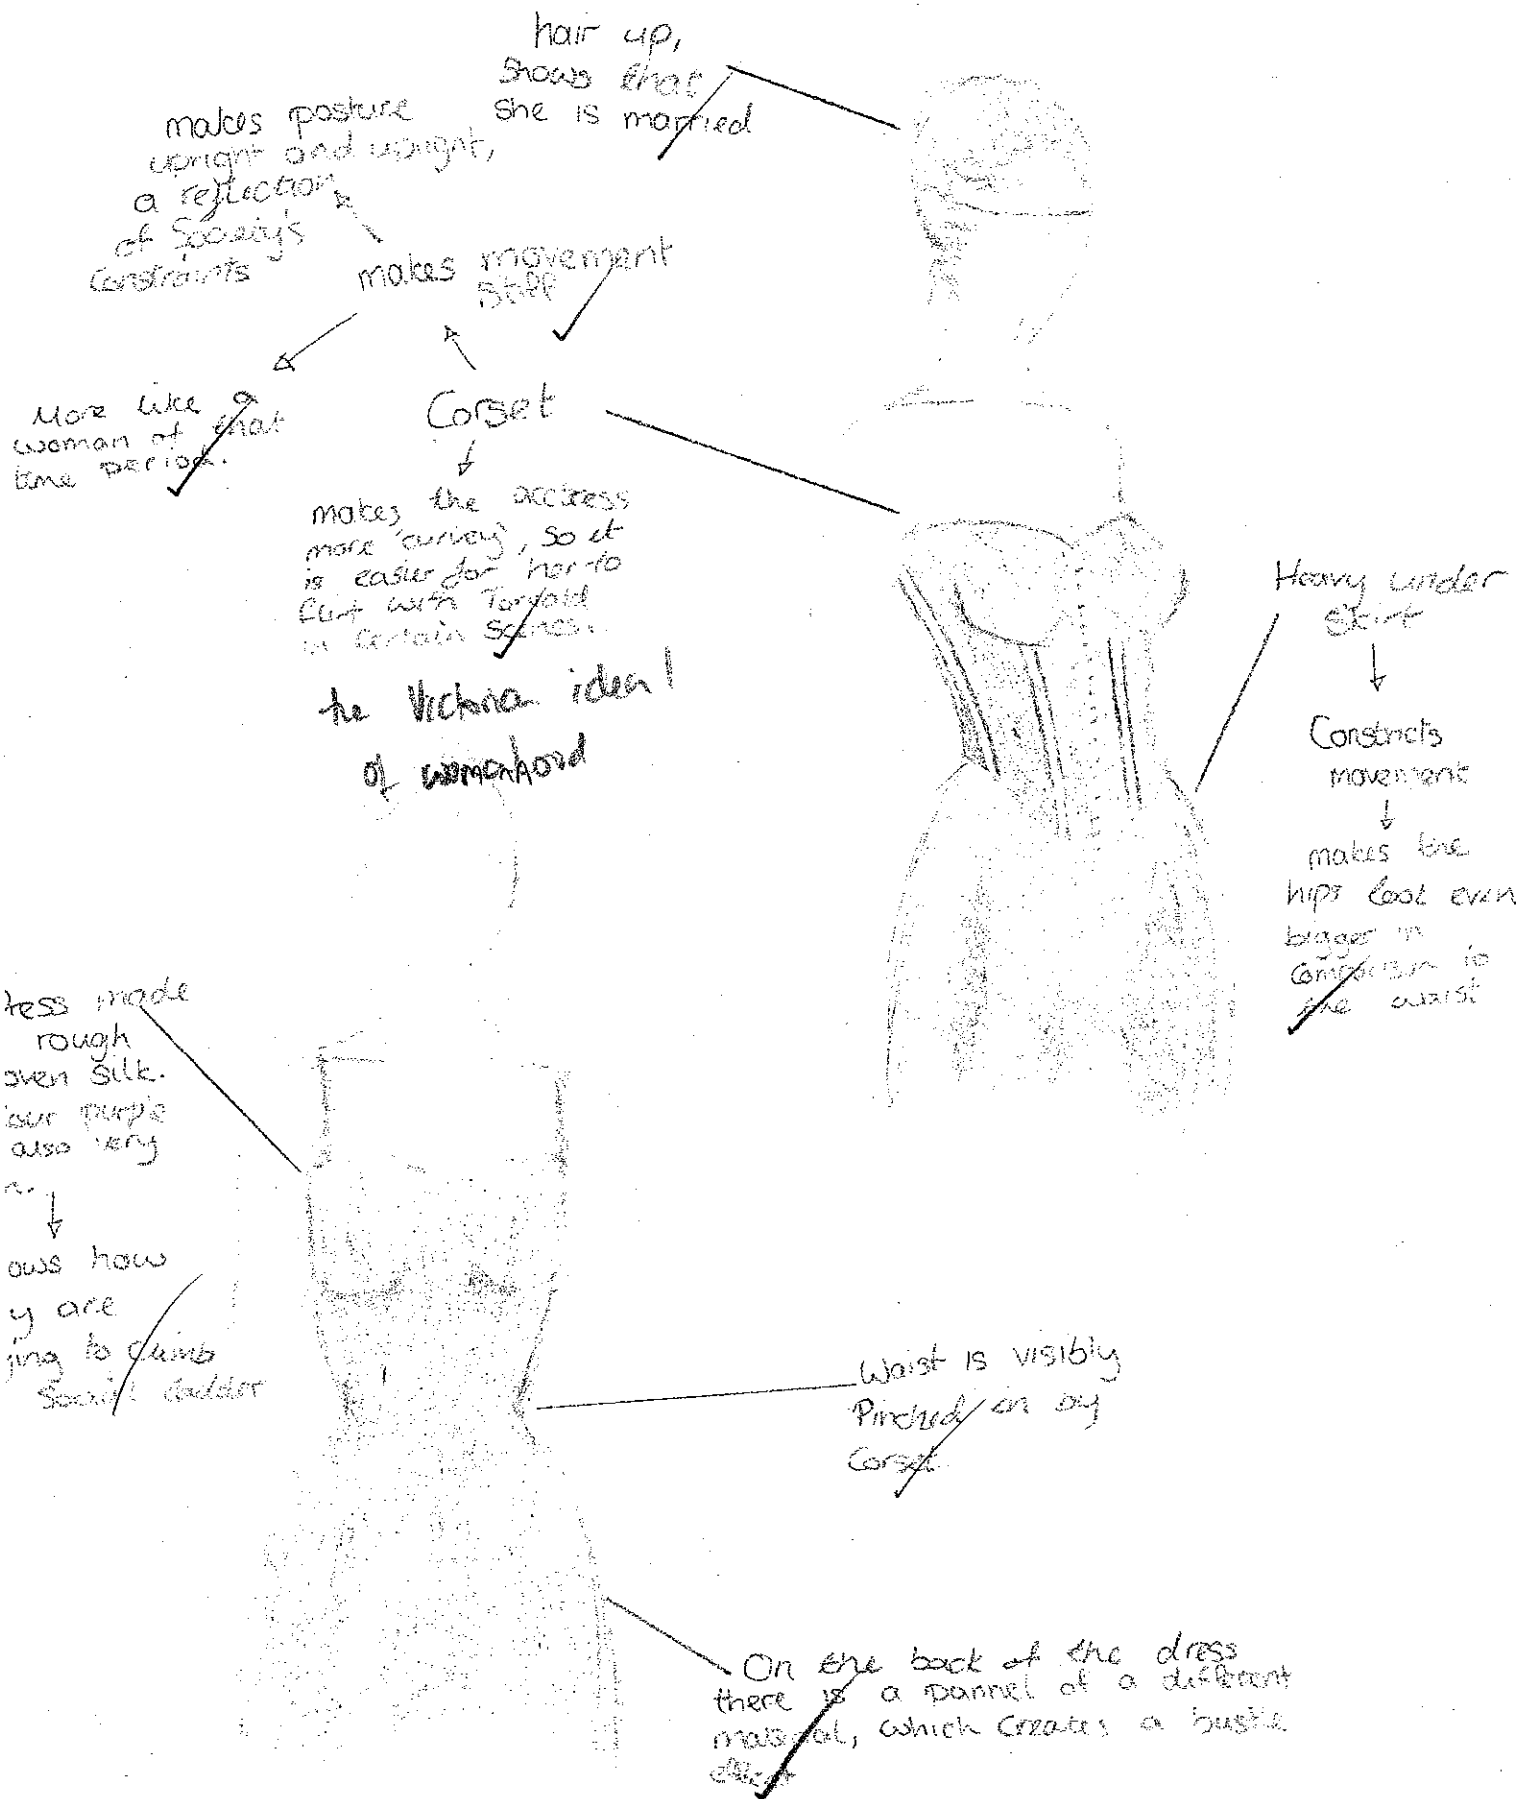 hair up,
shows that
she is married
makes posture
upright and upright,
a reflection
of Society's
Constraints
makes movement
stiff
More like a
woman of that
time period.
Corset
makes the acctress
more 'curvey', so it
is easier for her to
flirt with Torvald
in certain scenes.
the Victoria ideal
of womanhood
Heavy under
skirt
Constricts
movement
makes the
hips look even
bigger in
comparison to
the waist
ress made
rough
oven silk.
our purple
also very
n.
ows how
y are
ing to climb
social ladder
Waist is visibly
Pinched in by
Corset
On the back of the dress
there is a pannel of a different
material, which creates a bustle
effect